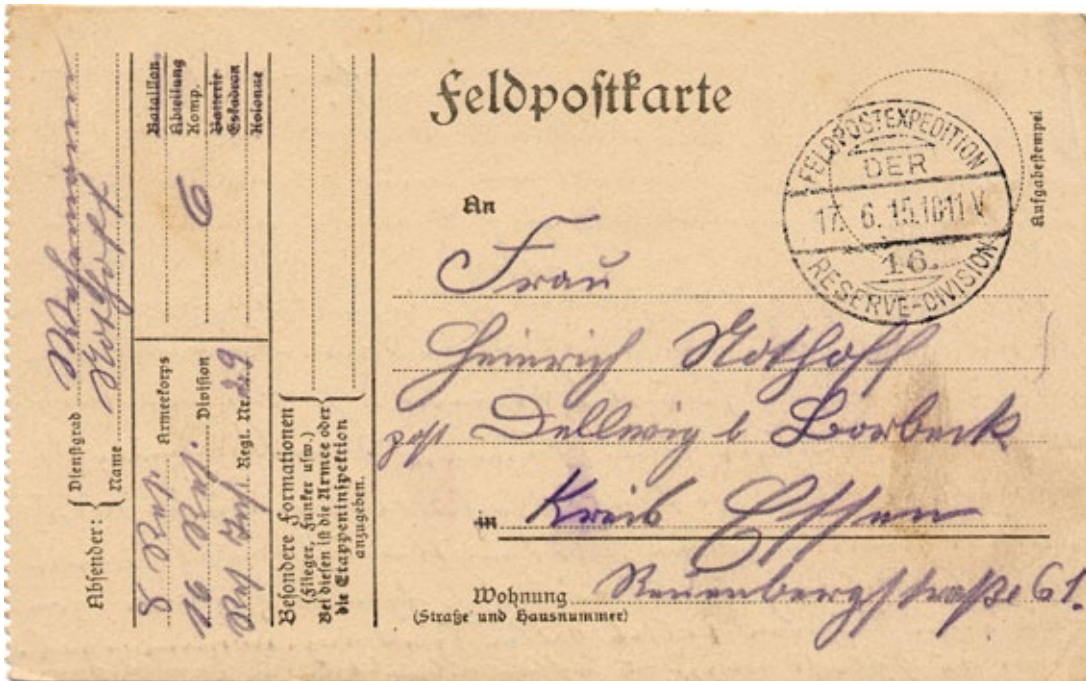 Feldpostkarte
Aufgabestempel
FELDPOSTEXPEDITION
DER
17. 6. 15. 10-11 V
16.
RESERVE-DIVISION
An
Frau
Heinrich Nothoff
post Dellwig b Borbeck
in Kreis Essen
Wohnung
(Straße und Hausnummer)
61.
Absender:
Dienstgrad Wehrmann
Name Nothoff
8 Res. Armeekorps
16 Res. Division
Res Inf. Regt. Nr. 29
Bataillon
Abteilung
Komp. 6
Batterie
Eskadron
Kolonne
Besondere Formationen
(Flieger, Funker usw.)
Bei diesen ist die Armee oder
die Etappeninspektion
anzugeben.